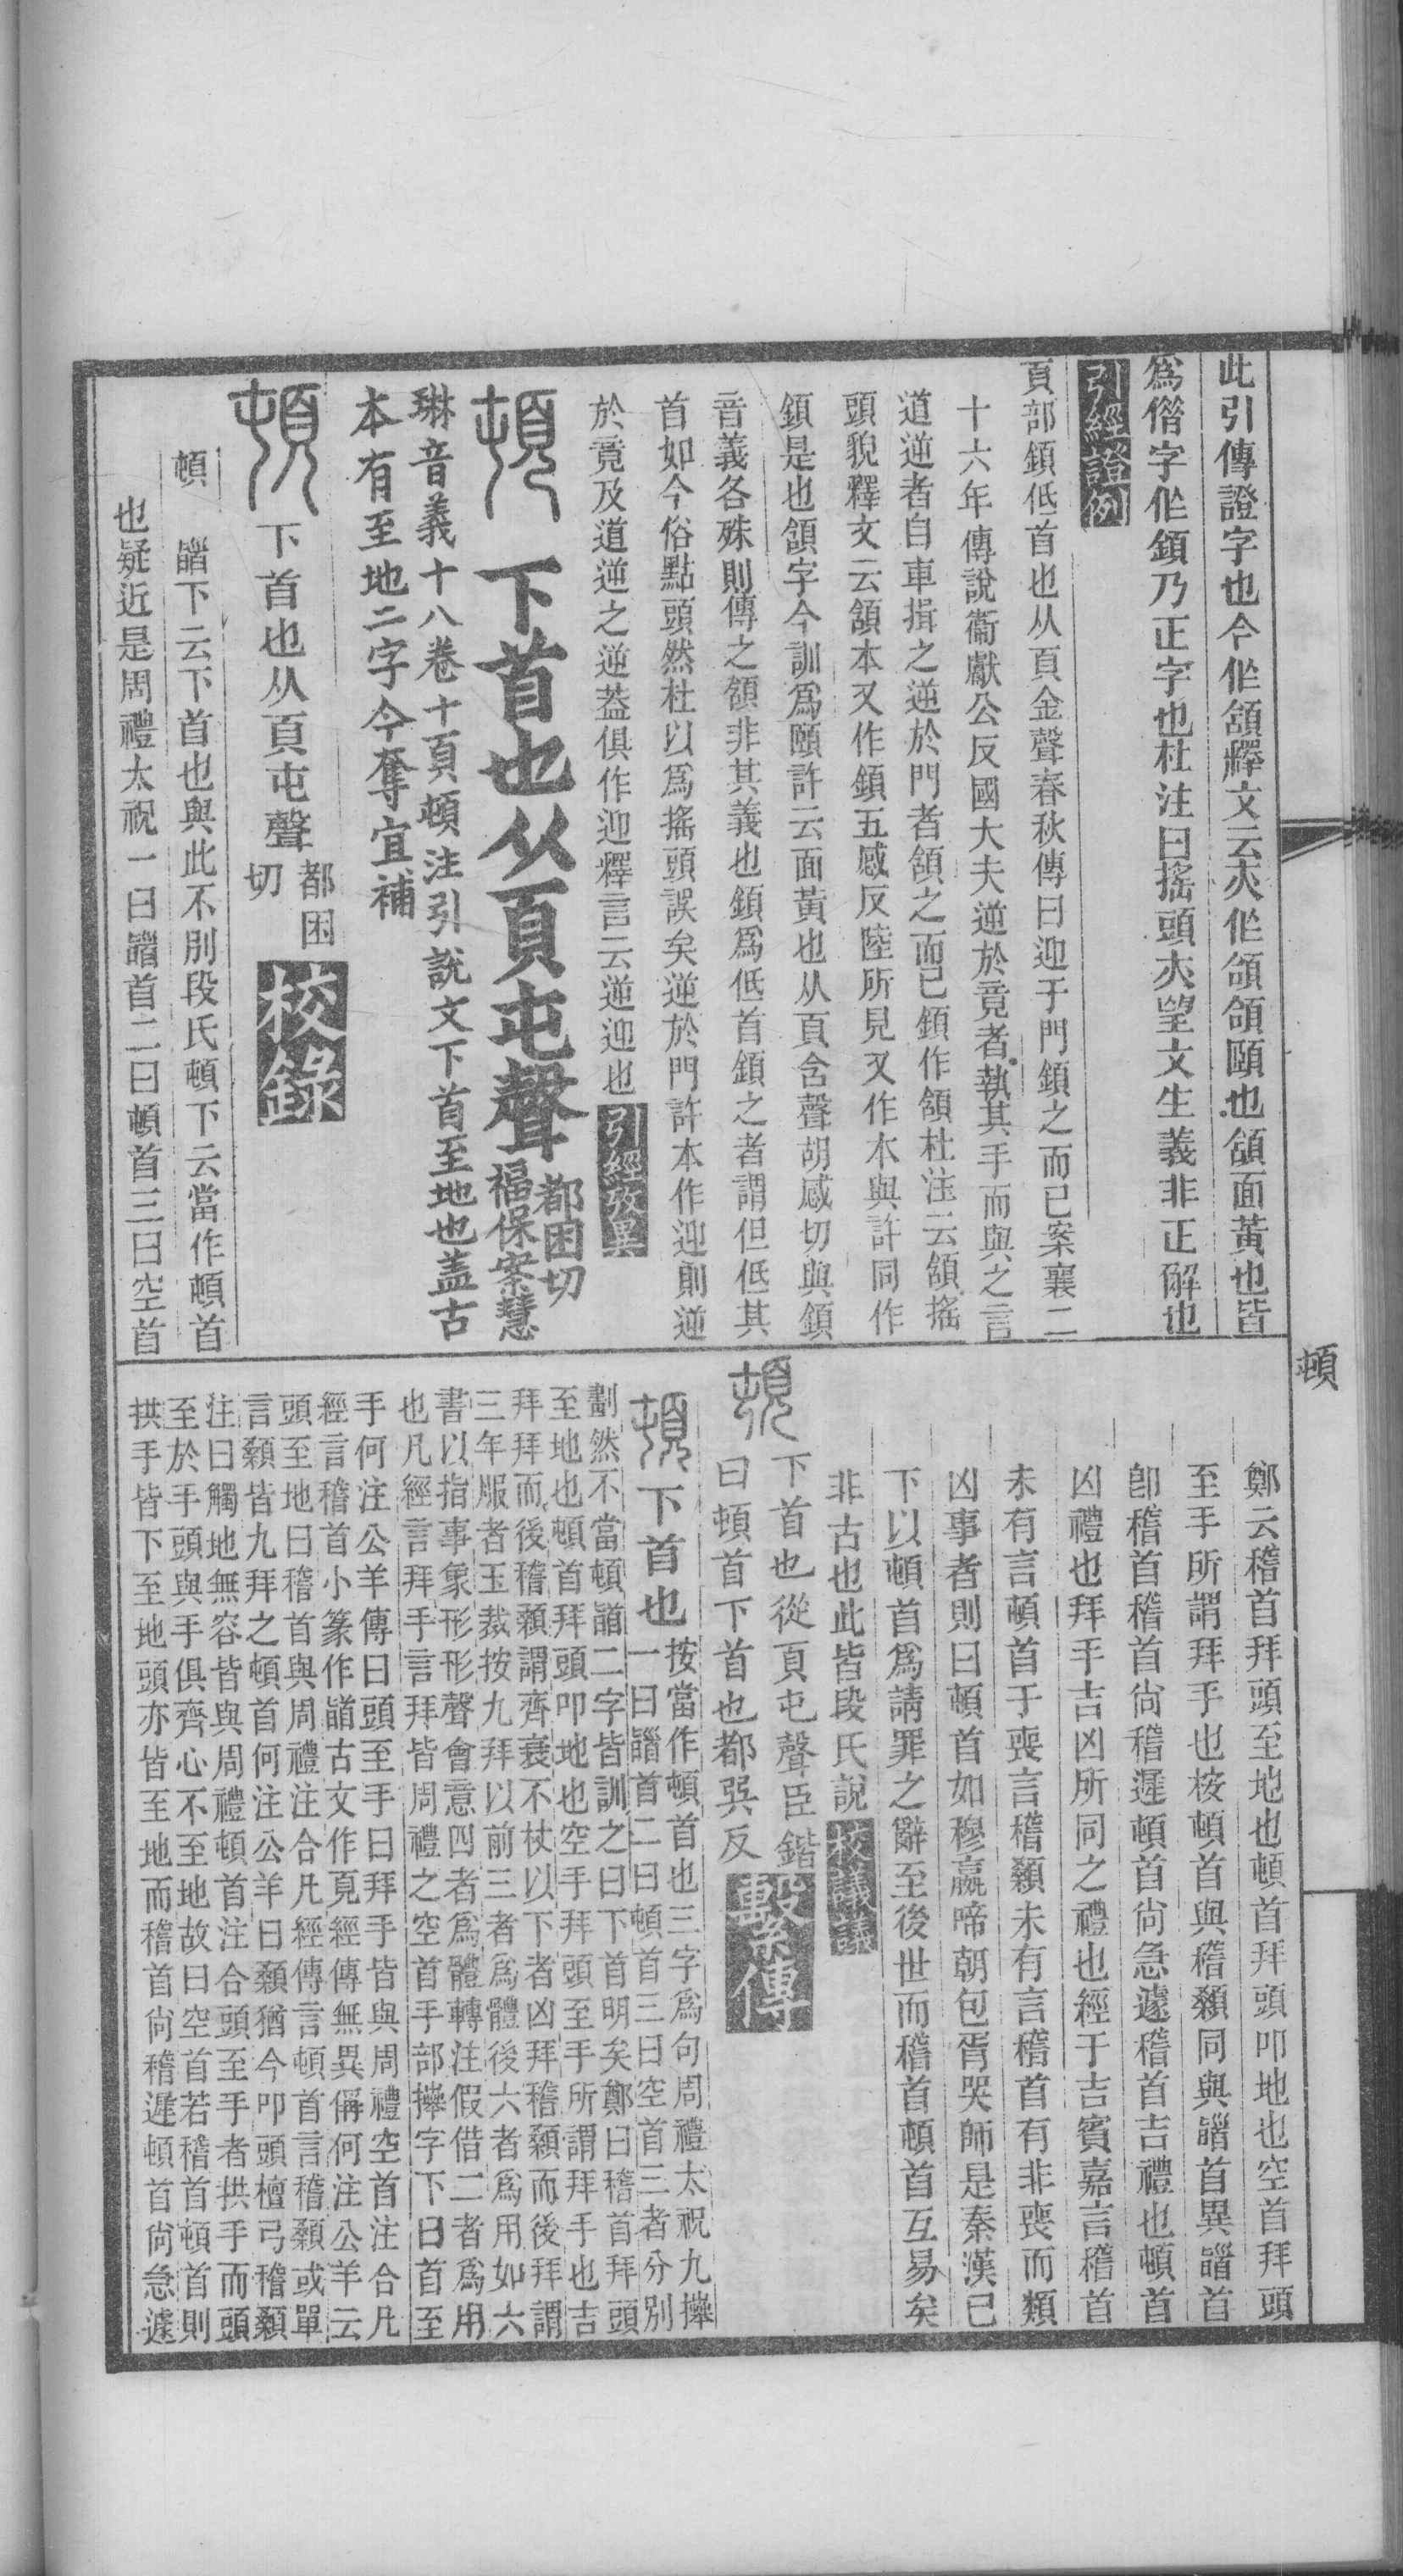 此引傳證字也今作頷釋文云夶作頜頜頤也頷面黃也皆
爲偺字作顉乃正字也杜注曰搖頭夶望文生義非正解也
引經證例
頁部顉低首也从頁金聲春秋傳曰迎于門顉之而已案襄二
十六年傳說衞獻公反國大夫逆於竟者執其手而與之言
道逆者自車揖之逆於門者頷之而已顉作頷杜注云頷搖
頭貌釋文云頷本又作顉五感反陸所見又作木與許同作
顉是也頷字今訓爲頤許云面黃也从頁含聲胡感切與顉
音義各殊則傳之頷非其義也顉爲低首顉之者謂但低其
首如今俗點頭然杜以爲搖頭誤矣逆於門許本作迎則逆
於竟及道逆之逆葢俱作迎釋言云逆迎也 引經攷異
頓 下首也从頁屯聲 都困切 福保案慧
琳音義十八卷十頁頓注引說文下首至地也盖古
本有至地二字今奪宜補
頓 下首也从頁屯聲 都困切 校錄
頓 䭫下云下首也與此不別段氏頓下云當作頓首
也疑近是周禮太祝一曰䭫首二曰頓首三曰空首
鄭云稽首拜頭至地也頓首拜頭叩地也空首拜頭
至手所謂拜手也桉頓首與稽顙同與䭫首異䭫首
卽稽首稽首尙稽遲頓首尙急遽稽首吉禮也頓首
凶禮也拜手吉凶所同之禮也經于吉賓嘉言稽首
未有言頓首于喪言稽顙未有言稽首有非喪而顙
凶事者則曰頓首如穆嬴啼朝包胥哭師是秦漢已
下以頓首爲請罪之辭至後世而稽首頓首互易矣
非古也此皆段氏說 校議議
頓 下首也從頁屯聲臣鍇
曰頓首下首也都巽反 繫傳
頓 下首也 按當作頓首也三字爲句周禮太祝九𢷎
一曰䭫首二曰頓首三曰空首三者分別
劃然不當頓䭫二字皆訓之曰下首明矣鄭曰稽首拜頭
至地也頓首拜頭叩地也空手拜頭至手所謂拜手也吉
拜拜而後稽顙謂齊衰不杖以下者凶拜稽顙而後拜謂
三年服者玉裁按九拜以前三者爲體後六者爲用如六
書以指事象形形聲會意四者爲體轉注假借二者爲用
也凡經言拜手言拜皆周禮之空首手部𢷎字下曰首至
手何注公羊傳曰頭至手曰拜手皆與周禮空首注合凡
經言稽首小篆作䭫古文作𩒨經傳無異偁何注公羊云
頭至地曰稽首與周禮注合凡經傳言頓首言稽顙或單
言顙皆九拜之頓首何注公羊曰顙猶今叩頭檀弓稽顙
注曰觸地無容皆與周禮頓首注合頭至手者拱手而頭
至於手頭與手俱齊心不至地故曰空首若稽首頓首則
拱手皆下至地頭亦皆至地而稽首尙稽遲頓首尙急遽
頓